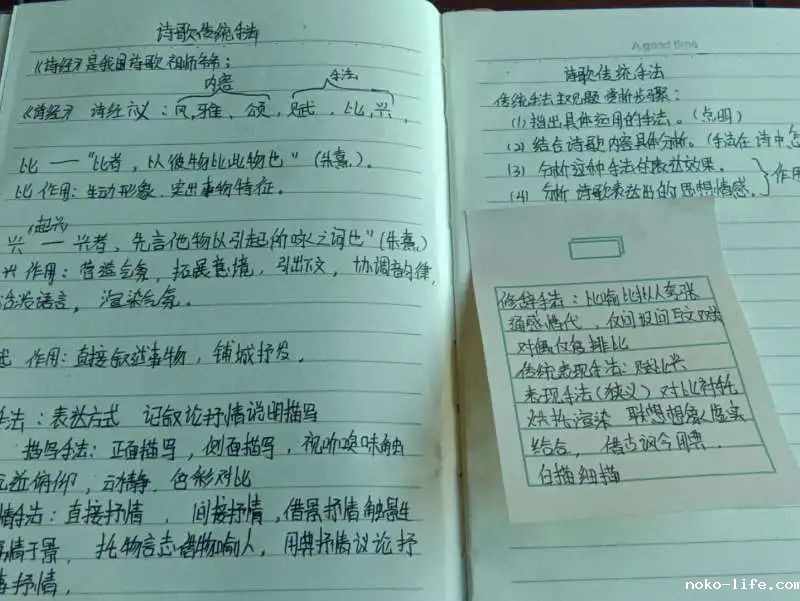 诗歌传统手法
《诗经》是我国诗歌
内容 手法
《诗经》 诗经六义：风，雅，颂，赋，比，兴，
比 —— "比者，以彼物比此物也"（朱熹）。
比 作用：生动形象，突出事物特征。
起兴
兴 —— 兴者，先言他物以引起所咏之词也"（朱熹）
兴 作用：营造气氛，拓展意境，引出下文，协调韵律，
语言，渲染气氛。
作用：直接叙述事物，铺城抒发。
手法：表达方式 记叙论抒情说明描写
描写手法：正面描写，侧面描写，视听嗅味触
俯仰，动静，色彩对比
情手法：直接抒情，间接抒情，借景抒情触景生
情于景，托物言志借物喻人，用典抒情议论抒
抒情，
A good time
诗歌传统手法
传统手法 赏析步骤：
(1) 指出具体运用的手法。（点明）
(2) 结合诗歌内容具体分析。（手法在诗中
(3) 分析这种手法的表达效果。
(4) 分析诗歌表达出的思想情感。 作用
修辞手法：比喻比拟人夸张
通感借代，设问反问互文
对偶仅复排比
传统表现手法：赋比兴
表现手法（狭义）对比衬托
烘托渲染 联想想象虚实
结合，借古讽今用典
白描细描
noko-life.com